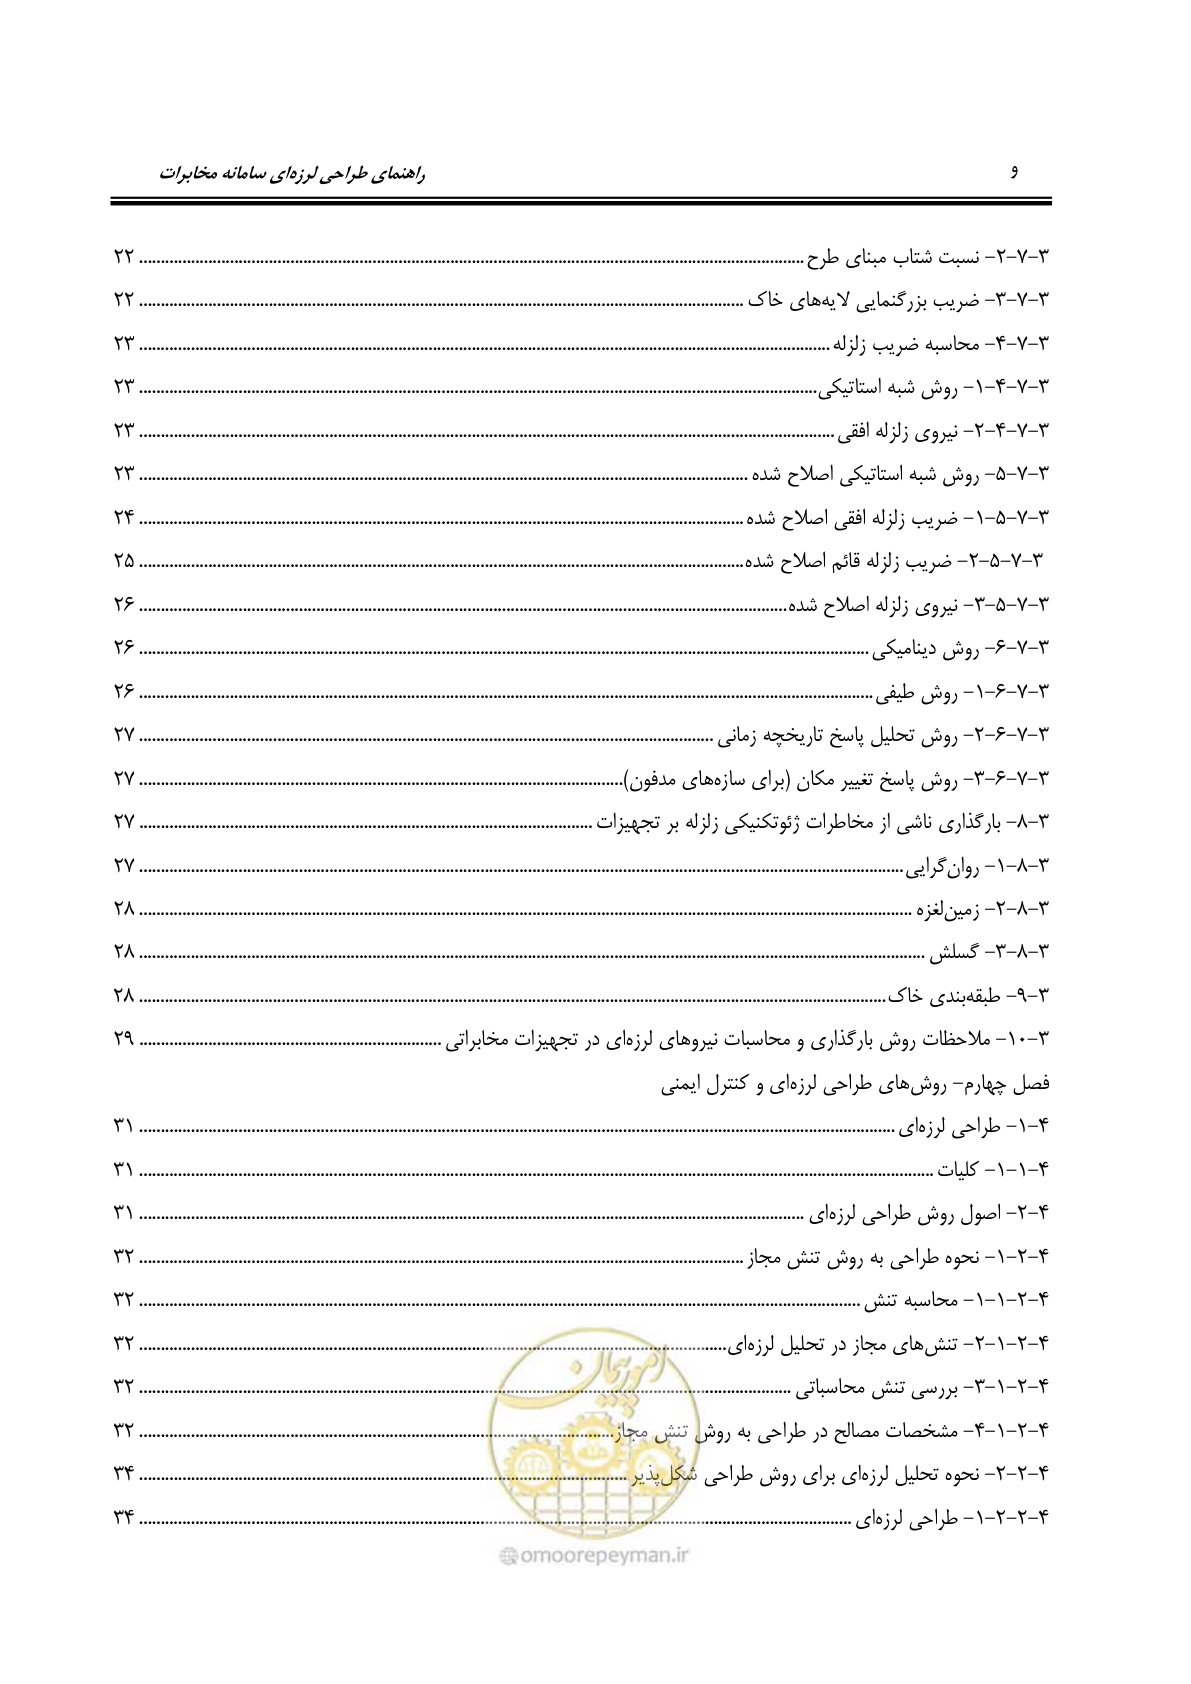 و
راهنمای طراحی لرزه‌ای سامانه مخابرات
۳-۷-۲- نسبت شتاب مبنای طرح ۲۲
۳-۷-۳- ضریب بزرگنمایی لایه‌های خاک ۲۲
۳-۷-۴- محاسبه ضریب زلزله ۲۳
۳-۷-۴-۱- روش شبه استاتیکی ۲۳
۳-۷-۴-۲- نیروی زلزله افقی ۲۳
۳-۷-۵- روش شبه استاتیکی اصلاح شده ۲۳
۳-۷-۵-۱- ضریب زلزله افقی اصلاح شده ۲۴
۳-۷-۵-۲- ضریب زلزله قائم اصلاح شده ۲۵
۳-۷-۵-۳- نیروی زلزله اصلاح شده ۲۶
۳-۷-۶- روش دینامیکی ۲۶
۳-۷-۶-۱- روش طیفی ۲۶
۳-۷-۶-۲- روش تحلیل پاسخ تاریخچه زمانی ۲۷
۳-۷-۶-۳- روش پاسخ تغییر مکان (برای سازه‌های مدفون) ۲۷
۳-۸- بارگذاری ناشی از مخاطرات ژئوتکنیکی زلزله بر تجهیزات ۲۷
۳-۸-۱- روان‌گرایی ۲۷
۳-۸-۲- زمین‌لغزه ۲۸
۳-۸-۳- گسلش ۲۸
۳-۹- طبقه‌بندی خاک ۲۸
۳-۱۰- ملاحظات روش بارگذاری و محاسبات نیروهای لرزه‌ای در تجهیزات مخابراتی ۲۹
فصل چهارم- روش‌های طراحی لرزه‌ای و کنترل ایمنی
۴-۱- طراحی لرزه‌ای ۳۱
۴-۱-۱- کلیات ۳۱
۴-۲- اصول روش طراحی لرزه‌ای ۳۱
۴-۲-۱- نحوه طراحی به روش تنش مجاز ۳۲
۴-۲-۱-۱- محاسبه تنش ۳۲
۴-۲-۱-۲- تنش‌های مجاز در تحلیل لرزه‌ای ۳۲
۴-۲-۱-۳- بررسی تنش محاسباتی ۳۲
۴-۲-۱-۴- مشخصات مصالح در طراحی به روش تنش مجاز ۳۲
۴-۲-۲- نحوه تحلیل لرزه‌ای برای روش طراحی شکل‌پذیر ۳۴
۴-۲-۲-۱- طراحی لرزه‌ای ۳۴
امور پیمان
@omoorepeyman.ir